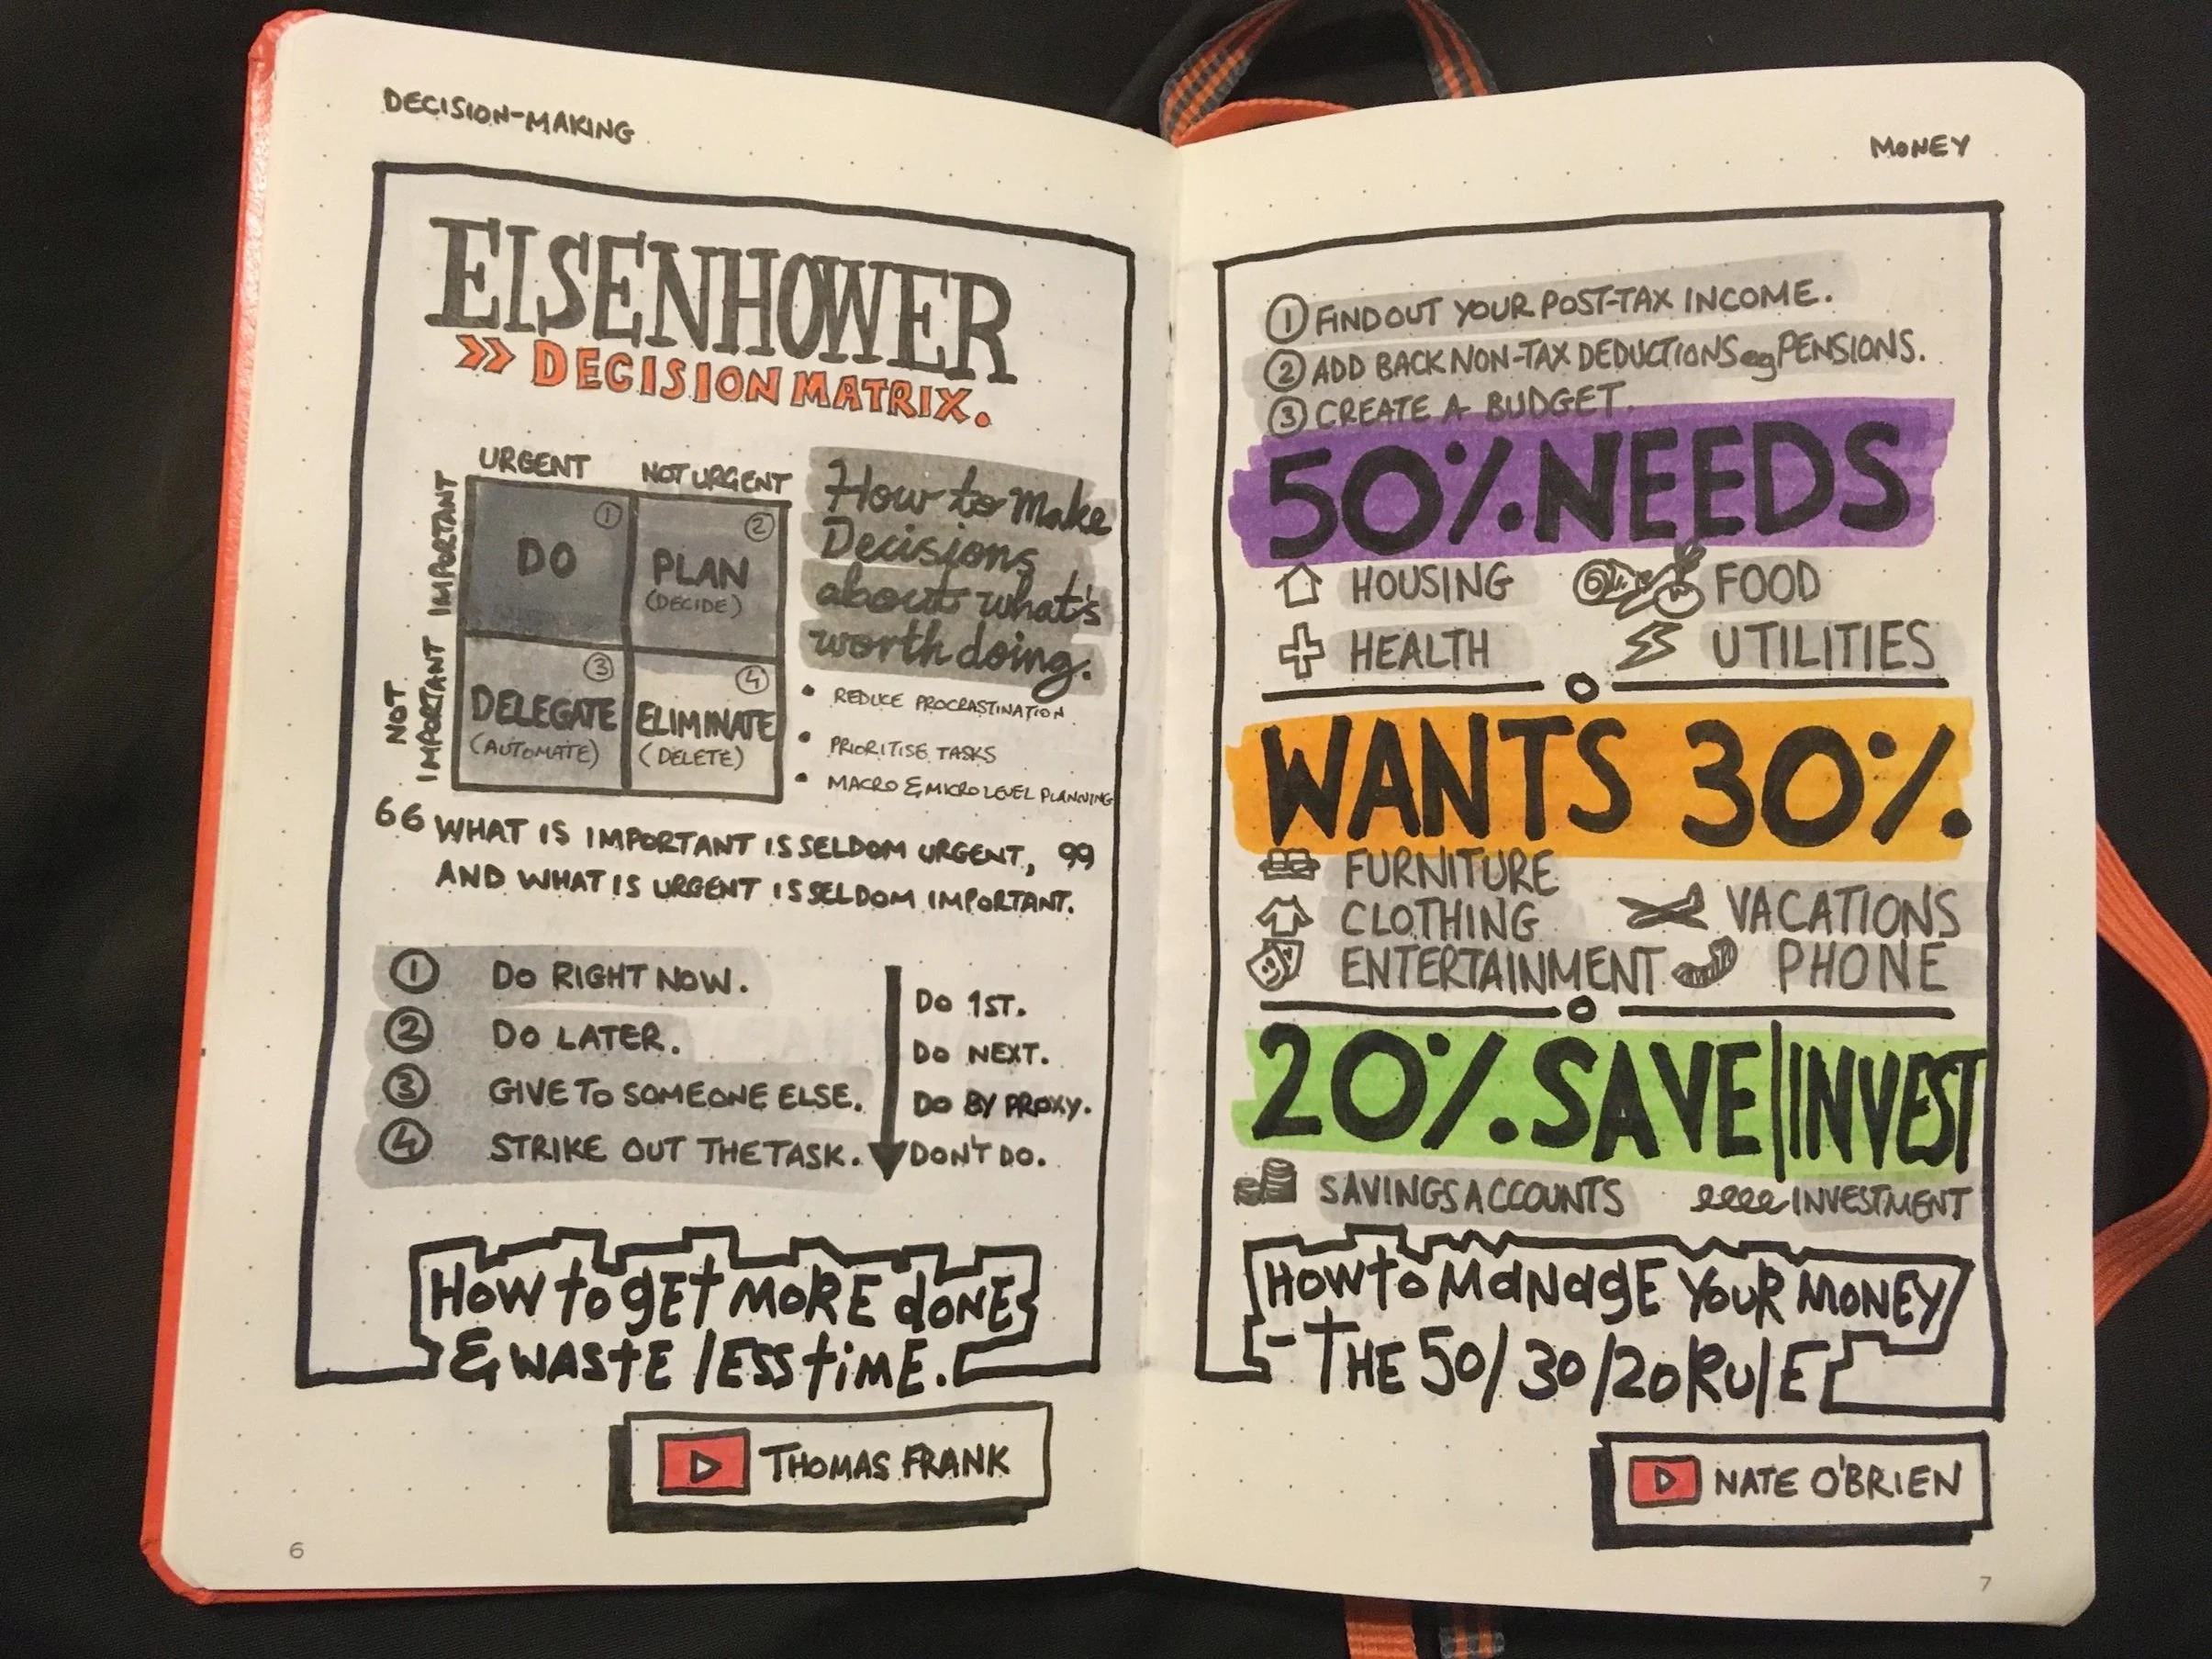 DECISION-MAKING
EISENHOWER
>> DECISION MATRIX.
URGENT
NOT URGENT
IMPORTANT
NOT
IMPORTANT
1
DO
2
PLAN
(DECIDE)
3
DELEGATE
(AUTOMATE)
4
ELIMINATE
(DELETE)
How to Make
Decisions
about what's
worth doing.
• REDUCE PROCRASTINATION
• PRIORITISE TASKS
• MACRO & MICRO LEVEL PLANNING
66 WHAT IS IMPORTANT IS SELDOM URGENT, 99
AND WHAT IS URGENT IS SELDOM IMPORTANT.
1 DO RIGHT NOW.
2 DO LATER.
3 GIVE TO SOMEONE ELSE.
4 STRIKE OUT THE TASK.
DO 1ST.
DO NEXT.
DO BY PROXY.
DON'T DO.
HOW to gEt MORE dONE
& WAStE lESS tiME.
THOMAS FRANK
6
MONEY
1 FIND OUT YOUR POST-TAX INCOME.
2 ADD BACK NON-TAX DEDUCTIONS eg PENSIONS.
3 CREATE A BUDGET.
50% NEEDS
HOUSING FOOD
HEALTH UTILITIES
WANTS 30%
FURNITURE
CLOTHING VACATIONS
ENTERTAINMENT PHONE
20% SAVE|INVEST
SAVINGS ACCOUNTS INVESTMENT
HOW to MANAgE YOUR MONEY
- THE 50/30/20 RUlE
NATE O'BRIEN
7